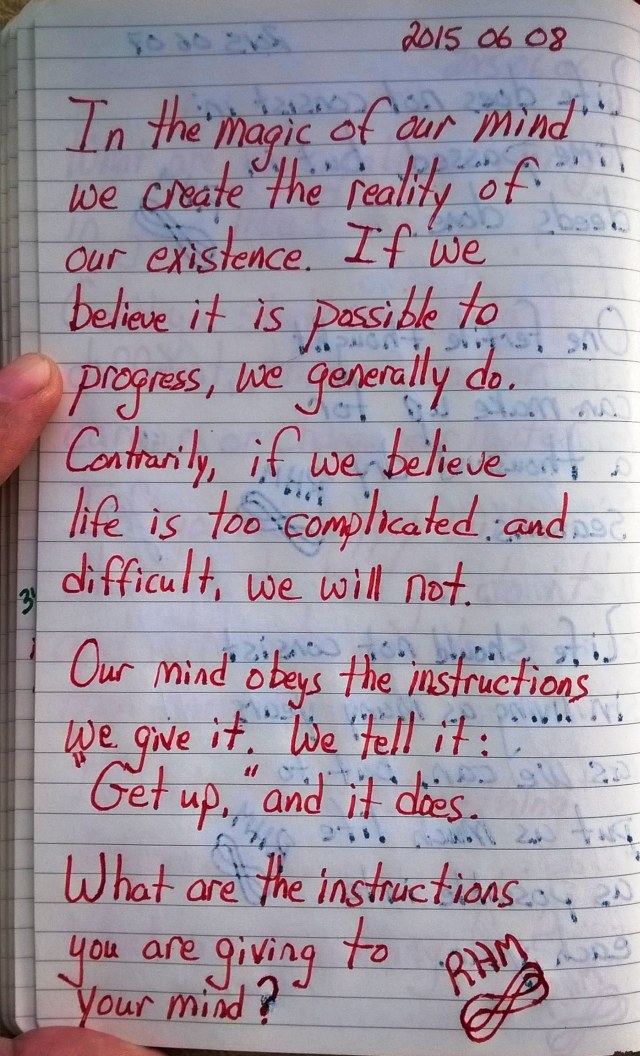 2015 06 08
In the magic of our mind
we create the reality of
our existence. If we
believe it is possible to
progress, we generally do.
Contrarily, if we believe
life is too complicated and
difficult, we will not.
Our mind obeys the instructions
we give it. We tell it:
"Get up," and it does.
What are the instructions
you are giving to
your mind?
RHM